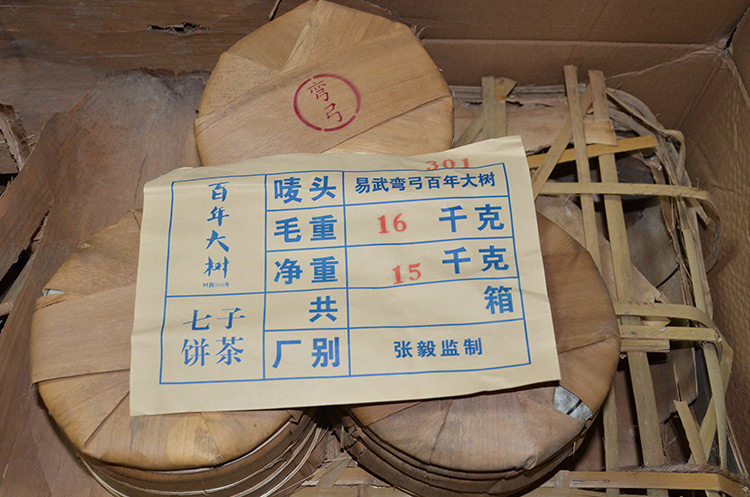 弯弓
301
百年大树
唛头 易武弯弓百年大树
毛重 16 千克
净重 15 千克
七子饼茶
共 箱
厂别 张毅监制